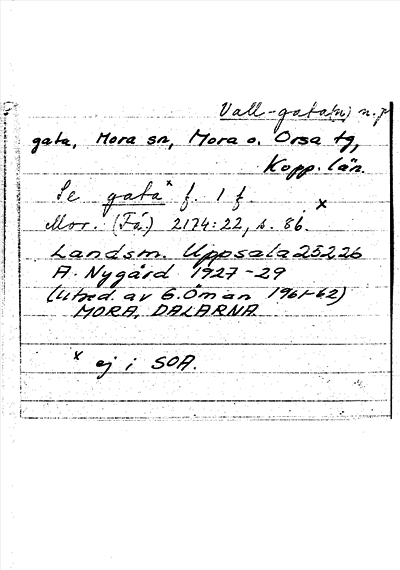 Vall-gata(n) n.p
gata, Mora sn, Mora o. Orsa tg,
Kopp. län.
Se gata x f. 1 f. x
Mor. (Få) 2174:22, s. 86.
Landsm. Uppsala 25226
A. Nygård 1927-29
(Utred. av G. Öman 1961-62)
MORA, DALARNA
x ej i SOA.